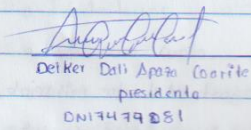 Deiker Dali Apazo Coarite
presidenta
DNI 7479D81